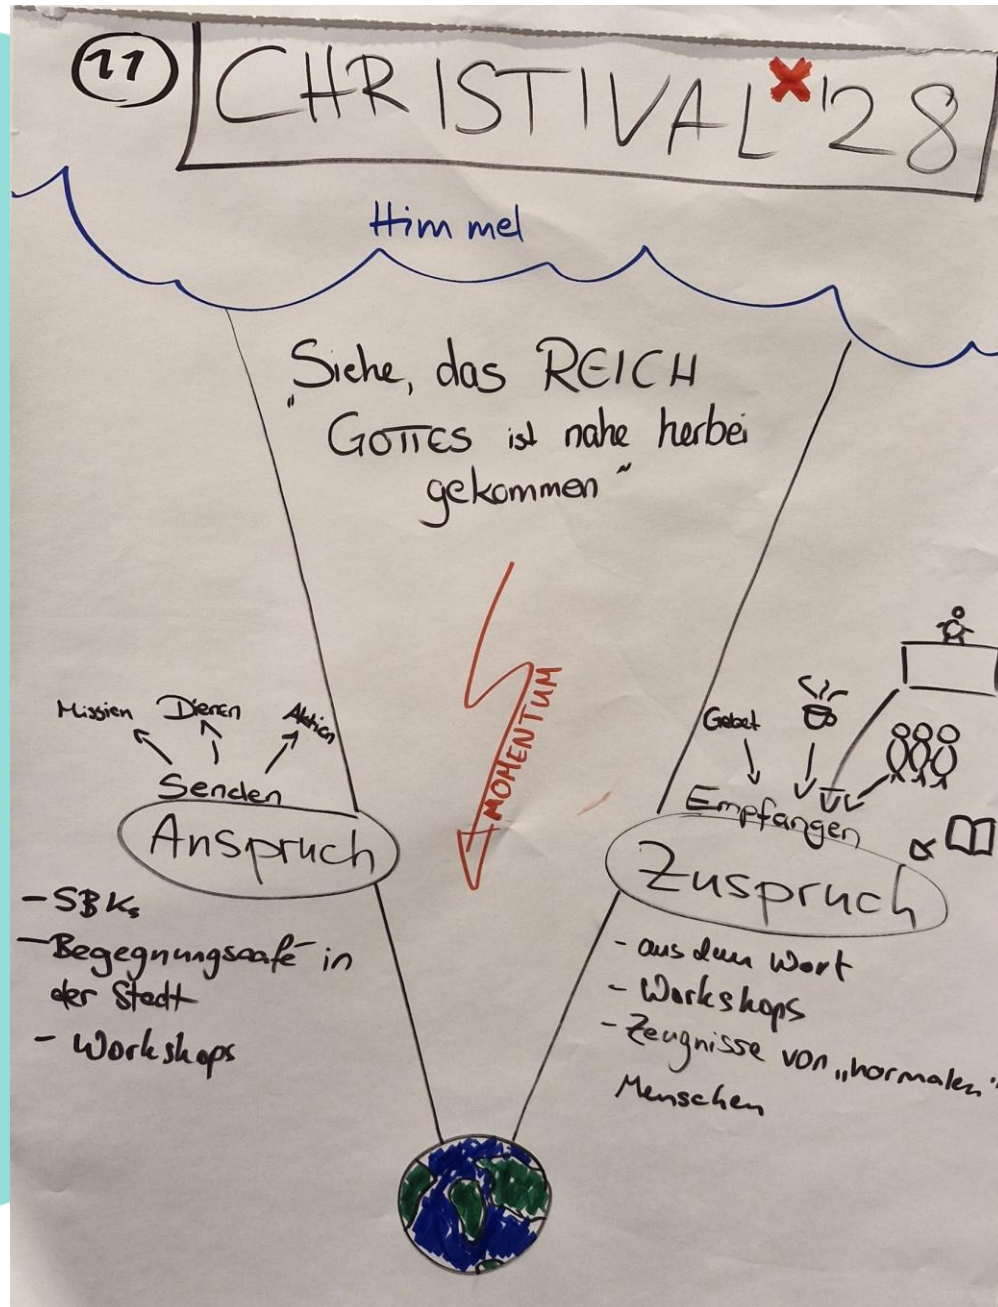 11
CHRISTIVAL '28
Himmel
„Siehe, das REICH
GOTTES ist nahe herbei
gekommen“
MOMENTUM
Mission Dienen Aktion
Senden
Anspruch
- SBKs
- Begegnungscafé in
der Stadt
- Workshops
Gebet
Empfangen
Zuspruch
- aus dem Wort
- Workshops
- Zeugnisse von „normalen“
Menschen